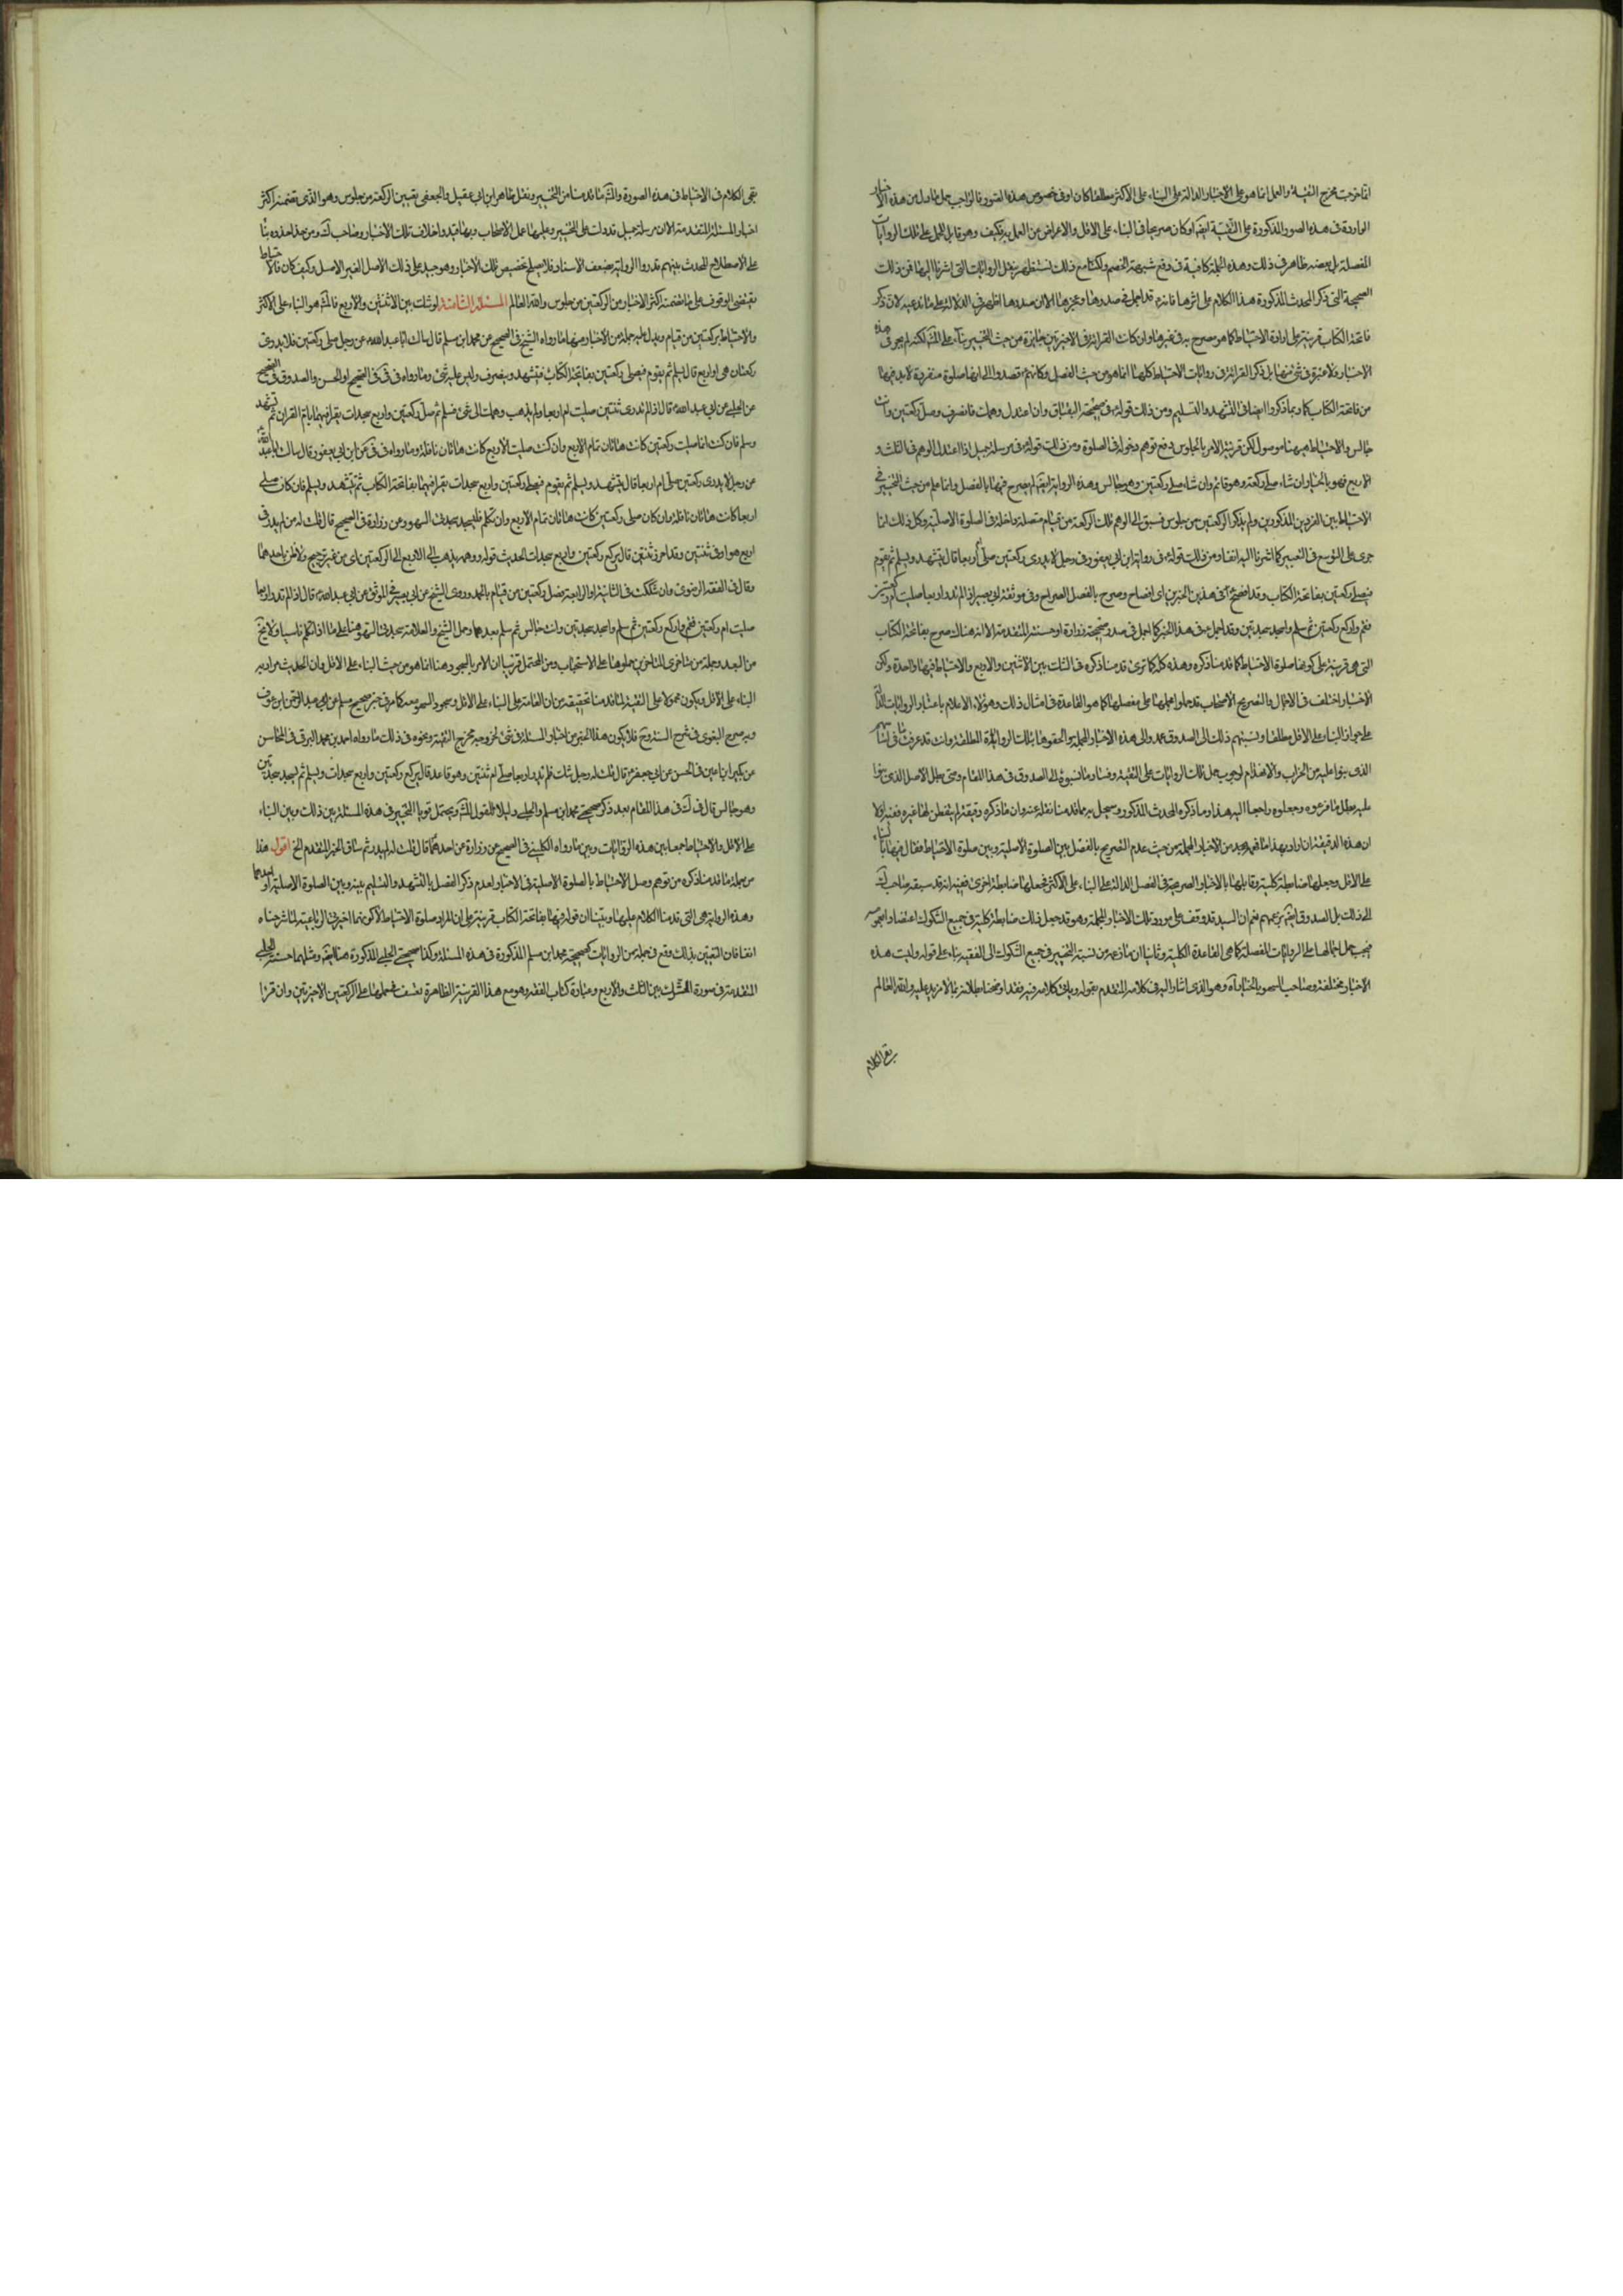 انما خرجت مخرج التقية والعمل انما هو على الاخبار الدالة على البناء على الاكثر مطلقا كان او في خصوص هذه الصور فالواجب حمل ما دل من هذه الاخبار
الواردة في هذه الصور المذكورة على التقية ايضا وكان صريحا في البناء على الاقل والاعراض عن العمل به فكيف وهو قابل للحمل على تلك الروايات
المفصلة بل بعضه ظاهر في ذلك وهذه الجملة كافية في دفع شبهة الخصم ولكنا مع ذلك نستظهر بنقل الروايات التي اشرنا اليها فمن ذلك
الصحيحة التي ذكر المحدث المذكورة هذا الكلام على اثرها فانه قد اجمل في صدرها وعجزها الا ان صدرها اظهر في الدلالة على ما ندعيه لان ذكر
فاتحة الكتاب قرينة على ارادة الاحتياط كما هو مصرح به في غيرها وان كانت القراءة في الاخيرتين جايزة من حيث التخيير بناء على المش لكنه لم يجر في هذه
الاخبار فلا عبرة في شئ منها بل ذكر القراءة في روايات الاحتياط كلها انما هو من حيث الفصل وكانهم قصدوا الى انها صلوة منفردة لا بد فيها
من فاتحة الكتاب كما ربما ذكروا ايضا في التشهد والتسليم ومن ذلك قوله في صحيحة البقباق وان اعتدل وهمك فانصرف وصل ركعتين وانت
جالس والاحتياط ههنا موصول لكن قرينة الامر بالجلوس يدفع توهم دخوله في الصلوة ومن ذلك قوله في مرسلة جميل اذا اعتدل الوهم في الثلث و
الاربع فهو بالخيار ان شاء صلى ركعة وهو قائم وان شاء صلى ركعتين وهو جالس وهذه الرواية ايضا لم يصرح فيها بالفصل وانما علم من حيث التخيير في
الاحتياط بين الفردين المذكورين ولم يذكر الركعتين من جلوس فسبق الى الوهم تلك الركعة من قيام متصلة داخلة في الصلوة الاصلية وكل ذلك انما
جرى على التوسع في التعبير كما اشرنا اليه انفا ومن ذلك قوله في رواية ابن ابي يعفور في رجل لا يدري ركعتين صلى ام اربعا قال يتشهد ويسلم ثم يقوم
فيصلي ركعتين بفاتحة الكتاب وقد افصح في هذين الخبرين اي افصاح وصرح بالفصل الصراح وفي موثقة ابي بصير اذا لم تدر اربعا صليت ام ركعتين
فقم واركع ركعتين ثم سلم واسجد سجدتين وقد اجمل في هذا الخبر كما اجمل في صدر صحيحة زرارة او حسنته المتقدمة الا انه هناك صرح بفاتحة الكتاب
التي هي قرينة على كونها صلوة الاحتياط كما قدمنا ذكره وهذه كلها كما ترى قد منا ذكره في الشك بين الاثنتين والاربع والاحتياط فيها واحدة ولكن
الاخبار اختلفت في الاجمال والتصريح الاصحاب قد حملوا مجملها على مفصلها كما هو القاعدة في امثال ذلك وهؤلاء الاعلام باعتبار الروايات الدالة
على جواز البناء على الاقل مطلقا ونسبتهم ذلك الى الصدوق عمد والى هذه الاخبار المجملة والحقوها بتلك الروايات المطلقة وانت قد عرفت ما في بنائهم
الذي بنوا عليه من الخراب والانهدام لوجوب حمل تلك الروايات على التقية وفساد ما نسبوه الى الصدوق في هذا المقام ومتى بطل الاصل الذي بنوا
عليه بطل ما فرعوه وجعلوه راجعا اليه هذا وما ذكره المحدث المذكور وسجل به مما قدمنا نقله عنه وان ما ذكره دقيقة لم يتفطن لها غيره ففيه اولا
ان هذه الدقيقة ان اراد بهذا ما فهمه مجيد من الاخبار المجملة من حيث عدم التصريح بالفصل بين الصلوة الاصلية وبين صلوة الاحتياط فقال فيها بالبناء
على الاقل وجعلها ضابطة كلية وقابلها بالاخبار الصريحة في الفصل الدالة على البناء على الاكثر فجعلها ضابطة اخرى ففيه انه قد سبقه صاحب لك
الى ذلك بل الصدوق ايضا بزعمهم نعم ان السيد قد وقف على مورد تلك الاخبار المجملة وهو قد جعل ذلك ضابطة كلية في جميع الشكوك
فيجب حمل اجمالها على الروايات المفصلة كما هي القاعدة الكلية وثانيا ان ما زعمه من نسبة التخيير في جميع الشكوك الى الفقيه بناء على قوله وليست هذه
الاخبار مختلفة وصاحب السهو بالخيار اه وهو الذي اشار اليه في كلامه المتقدم بقوله وياتي كلامه فيه فقد اوضحنا بطلانه بما لا مزيد عليه والله العالم
بقي الكلام
بقي الكلام في الاحتياط في هذه الصورة والمش ما قدمنا من التخيير ونقل ظاهر ابن ابي عقيل والجعفي تعيين الركعة من جلوس وهو الذي تضمنه اكثر
اخبار المسئلة المتقدمة الا ان مرسلة جميل قد دلت على التخيير وعليها عمل الاصحاب وبها قيدوا خلاف تلك الاخبار وصاحب لك ومن حذا حذوه بناء
على الاصطلاح المحدث بينهم قد ردوا الرواية بضعف الاسناد فلا يصلح تخصيص تلك الاخبار وهو جيد على ذلك الاصل الغير الاصيل وكيف كان فالاحتياط
يقتضي الوقوف على ما تضمنه اكثر الاخبار من الركعتين من جلوس والله العالم المسئلة الثامنة لو شك بين الاثنتين والاربع فالمش هو البناء على الاكثر
والاحتياط بركعتين من قيام ويدل عليه جملة من الاخبار ومنها ما رواه الشيخ في الصحيح عن محمد ابن مسلم قال سالت ابا عبد الله عن رجل صلى ركعتين فلا يدري
ركعتان هي او اربع قال يسلم ثم يقوم فيصلي ركعتين بفاتحة الكتاب فيتشهد وينصرف وليس عليه شئ وما رواه في في الصحيح او الحسن والصدوق في الصحيح
عن الحلبي عن ابي عبد الله قال اذا لم تدر اثنتين صليت ام اربعا ولم يذهب وهمك الى شئ فسلم ثم صل ركعتين واربع سجدات بقرا فيهما بام القران ثم تشهد
وسلم فان كنت انما صليت ركعتين كانت هاتان تمام الاربع وان كنت صليت الاربع كانت هاتان نافلة وما رواه في في عن ابن ابي يعفور قال سالت ابا عبد الله
عن رجل لا يدري ركعتين صلى ام اربعا قال يتشهد ويسلم ثم يقوم فيصلي ركعتين واربع سجدات يقرا فيهما بفاتحة الكتاب ثم يتشهد ويسلم فان كان صلى
اربعا كانت هاتان نافلة وان كان صلى ركعتين كانت هاتان تمام الاربع وان تكلم فليسجد سجدتي السهو وعن زرارة في الصحيح قال قلت له من لم يدر في
اربع هو او في ثنتين وقد احرز ثنتين قال يركع ركعتين واربع سجدات الحديث قوله ووهمه يذهب الى الاربع الى الركعتين اي من غير ترجيح ولا ظن باحدهما
وقال في الفقه الرضوي وان شككت في الثانية او الرابعة فصل ركعتين من قيام بالحمد وروى الشيخ عن ابي بصير في الموثق عن ابي عبد الله قال اذا لم تدر اربعا
صليت ام ركعتين فقم واركع ركعتين ثم سلم واسجد سجدتين وانت جالس ثم سلم بعدهما وحمل الشيخ والعلامة سجدتي السهو هنا على ما اذا تكلم ناسيا ولا يخ
من البعد وجملة من متاخري المتاخرين حملوها على الاستحباب ومن المحتمل قريبا ان الامر بالسجود هنا انما هو من حيث البناء على الاقل وان الحديث مراد به
البناء على الاقل ويكون محمولا على التقية لما قدمنا تحقيقه من ان العامة على البناء على الاقل وسجود السهو معه كما مر في خبر صحيح مسلم عن ابي عبد الرحمن ابن عوف
وبه صرح البغوي في شرح السنة وح فلا يكون هذا الخبر من اخبار المسئلة في شئ لخروجه مخرج التقية ونحوه في ذلك ما رواه احمد بن محمد البرقي في المحاسن
عن بكير ابن اعين في الحسن عن ابي جعفر قال قلت له رجل شك فلم يدر اربعا صلى ام ثنتين وهو قاعد قال يركع ركعتين واربع سجدات ويسلم ثم يسجد سجدتين
وهو جالس قال في لك في هذا المقام بعد ذكر صحيحتي محمد ابن مسلم والحلبي دليلا للقول المش ويحتمل قويا التخيير في هذه المسئلة بين ذلك وبين البناء
على الاقل والاحتياط جمعا بين هذه الروايات وبين ما رواه الكليني في الصحيح عن زرارة عن احدهما قال قلت له من لم يدر ثم ساق الخبر المتقدم الخ اقول هذا
من جملة ما قدمنا ذكره من توهم وصل الاحتياط بالصلوة الاصلية في الاخبار لعدم ذكر الفصل بالتشهد والتسليم بينه وبين الصلوة الاصلية او احدهما
وهذه الرواية هي التي قدمنا الكلام عليها وبينا ان قوله فيها بفاتحة الكتاب قرينة على ان المراد صلوة الاحتياط لا كونهما اخيرتي الرباعية لما شرحناه
انفا فان التعيين بذلك وقع في جملة من الروايات كصحيحة محمد ابن مسلم المذكورة في هذه المسئلة وكذا صحيحة الحلبي المذكورة هنا ايضا ومثلهما حسنة الحلبي
المتقدمة في صورة الشك بين الثلث والاربع وعبارة كتاب الفقه وهو مع هذا القرينة الظاهرة تعسف فحملها على الركعتين الاخيرتين وان قرا